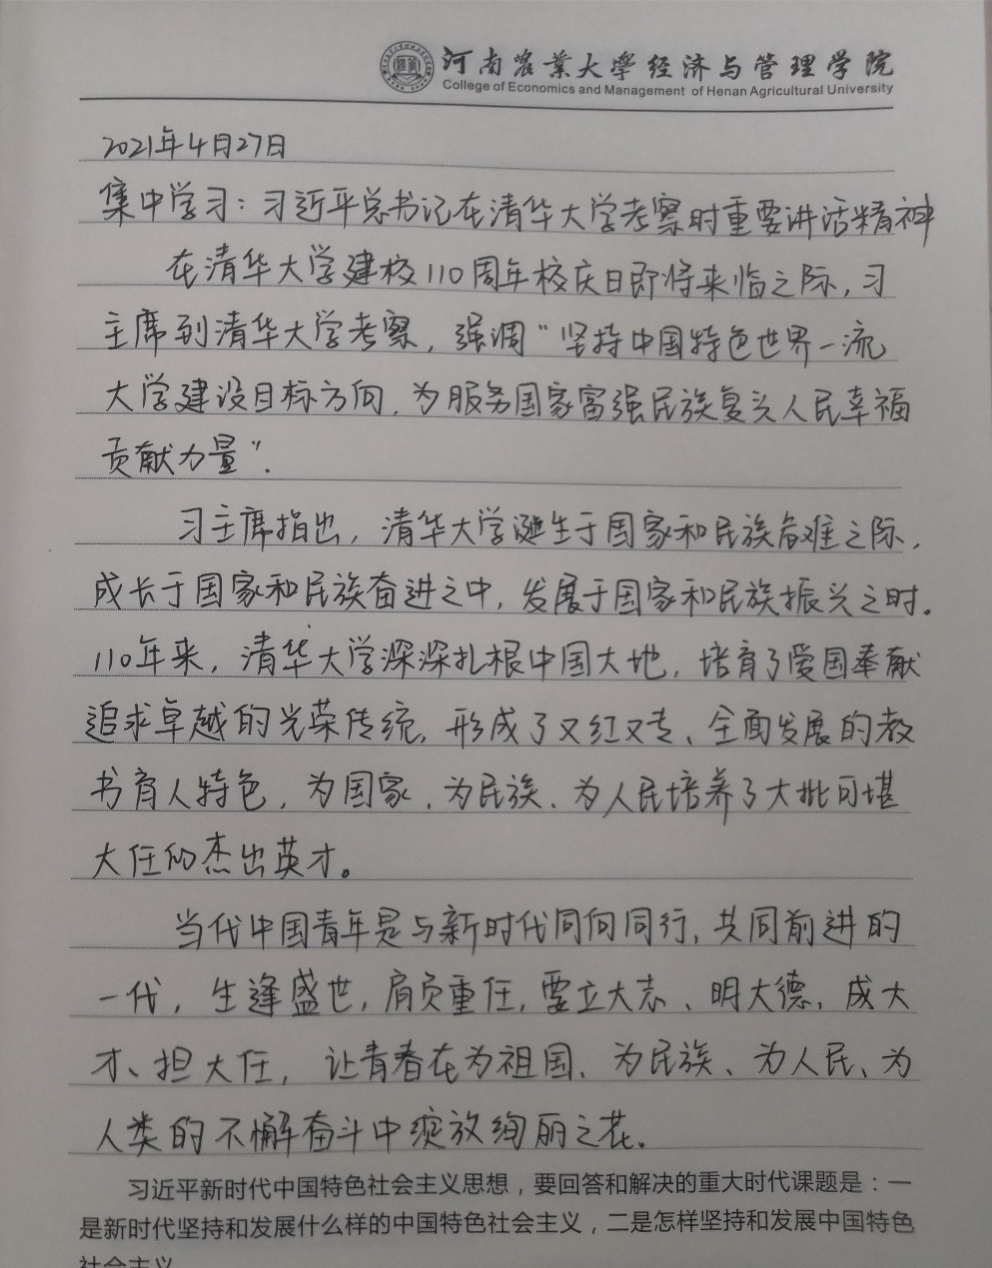 河南农业大学经济与管理学院
College of Economics and Management of Henan Agricultural University
2021年4月27日
集中学习：习近平总书记在清华大学考察时重要讲话精神
在清华大学建校110周年校庆日即将来临之际，习
主席到清华大学考察，强调“坚持中国特色世界一流
大学建设目标方向，为服务国家富强民族复兴人民幸福
贡献力量”.
习主席指出，清华大学诞生于国家和民族危难之际，
成长于国家和民族奋进之中，发展于国家和民族振兴之时.
110年来，清华大学深深扎根中国大地，培育了爱国奉献
追求卓越的光荣传统，形成了又红又专、全面发展的教
书育人特色，为国家，为民族、为人民培养了大批可堪
大任的杰出英才。
当代中国青年是与新时代同向同行，共同前进的
一代，生逢盛世，肩负重任，要立大志、明大德，成大
才、担大任，让青春在为祖国、为民族、为人民、为
人类的不懈奋斗中绽放绚丽之花.
习近平新时代中国特色社会主义思想，要回答和解决的重大时代课题是：一
是新时代坚持和发展什么样的中国特色社会主义，二是怎样坚持和发展中国特色
社会主义